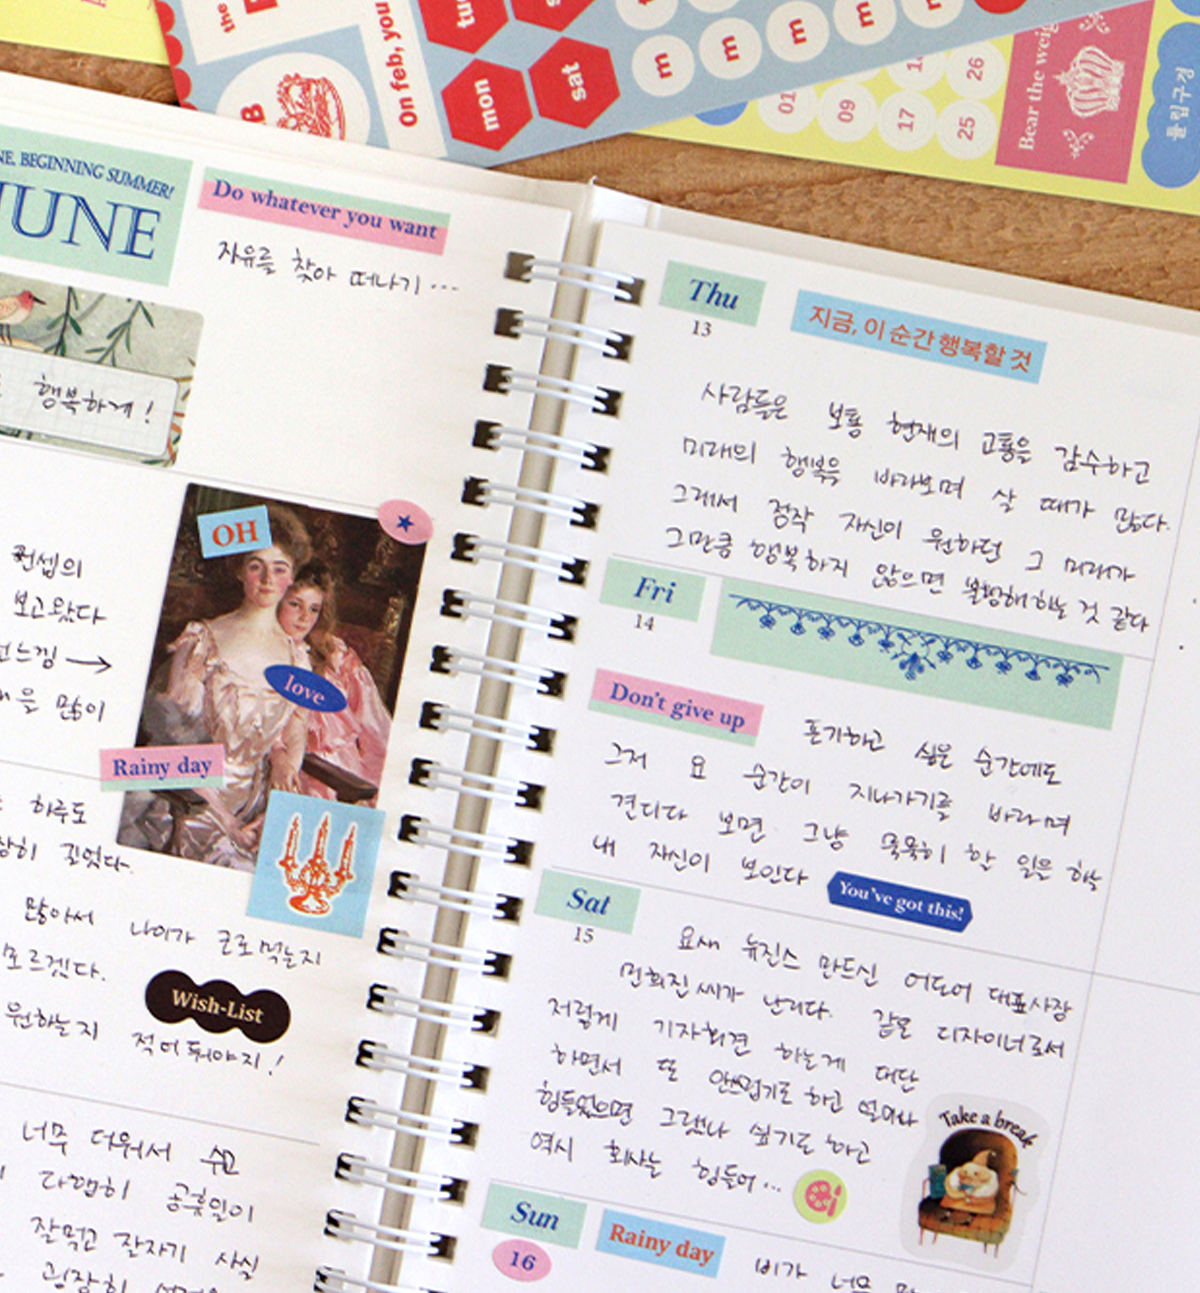 the
B
On feb, you
tue
mon
sat
m
m
m
m
01
09
17
25
26
Bear the weig
플립구경
NE. BEGINNING SUMMER!
JUNE
Do whatever you want
자유를 찾아 떠나기...
행복하게!
OH
컨셉의
보고왔다
느낌 →
을 많이
love
Rainy day
하루도
길었다.
많아서 나이가 근로먹는지
모르겠다.
Wish-List
원하는지 적어둬야지!
너무 더워서
다행히 공휴일이
잘먹고 잘자기 사실
굉장히
Thu
13
지금, 이 순간 행복할 것
사람들은 보통 현재의 고통을 감수하고
미래의 행복을 바라보며 살 때가 많다.
그래서 정작 자신이 원하던 그 미래가
그만큼 행복하지 않으면 불평해하는 것 같다
Fri
14
Don't give up
포기하고 싶은 순간에도
그저 요 순간이 지나가기를 바라며
견디다 보면 그냥 묵묵히 할 일을 하는
내 자신이 보인다
You've got this!
Sat
15
요새 뉴진스 만드신 어도어 대표사장
민희진씨가 난리다. 같은 디자이너로서
저렇게 기자회견 하는게 대단
하면서 또 안쓰럽기도 하고 얼마나
힘들었으면 그랬나 싶기도 하고
역시 회사는 힘들어...
Take a break
Sun
16
Rainy day
비가 너무